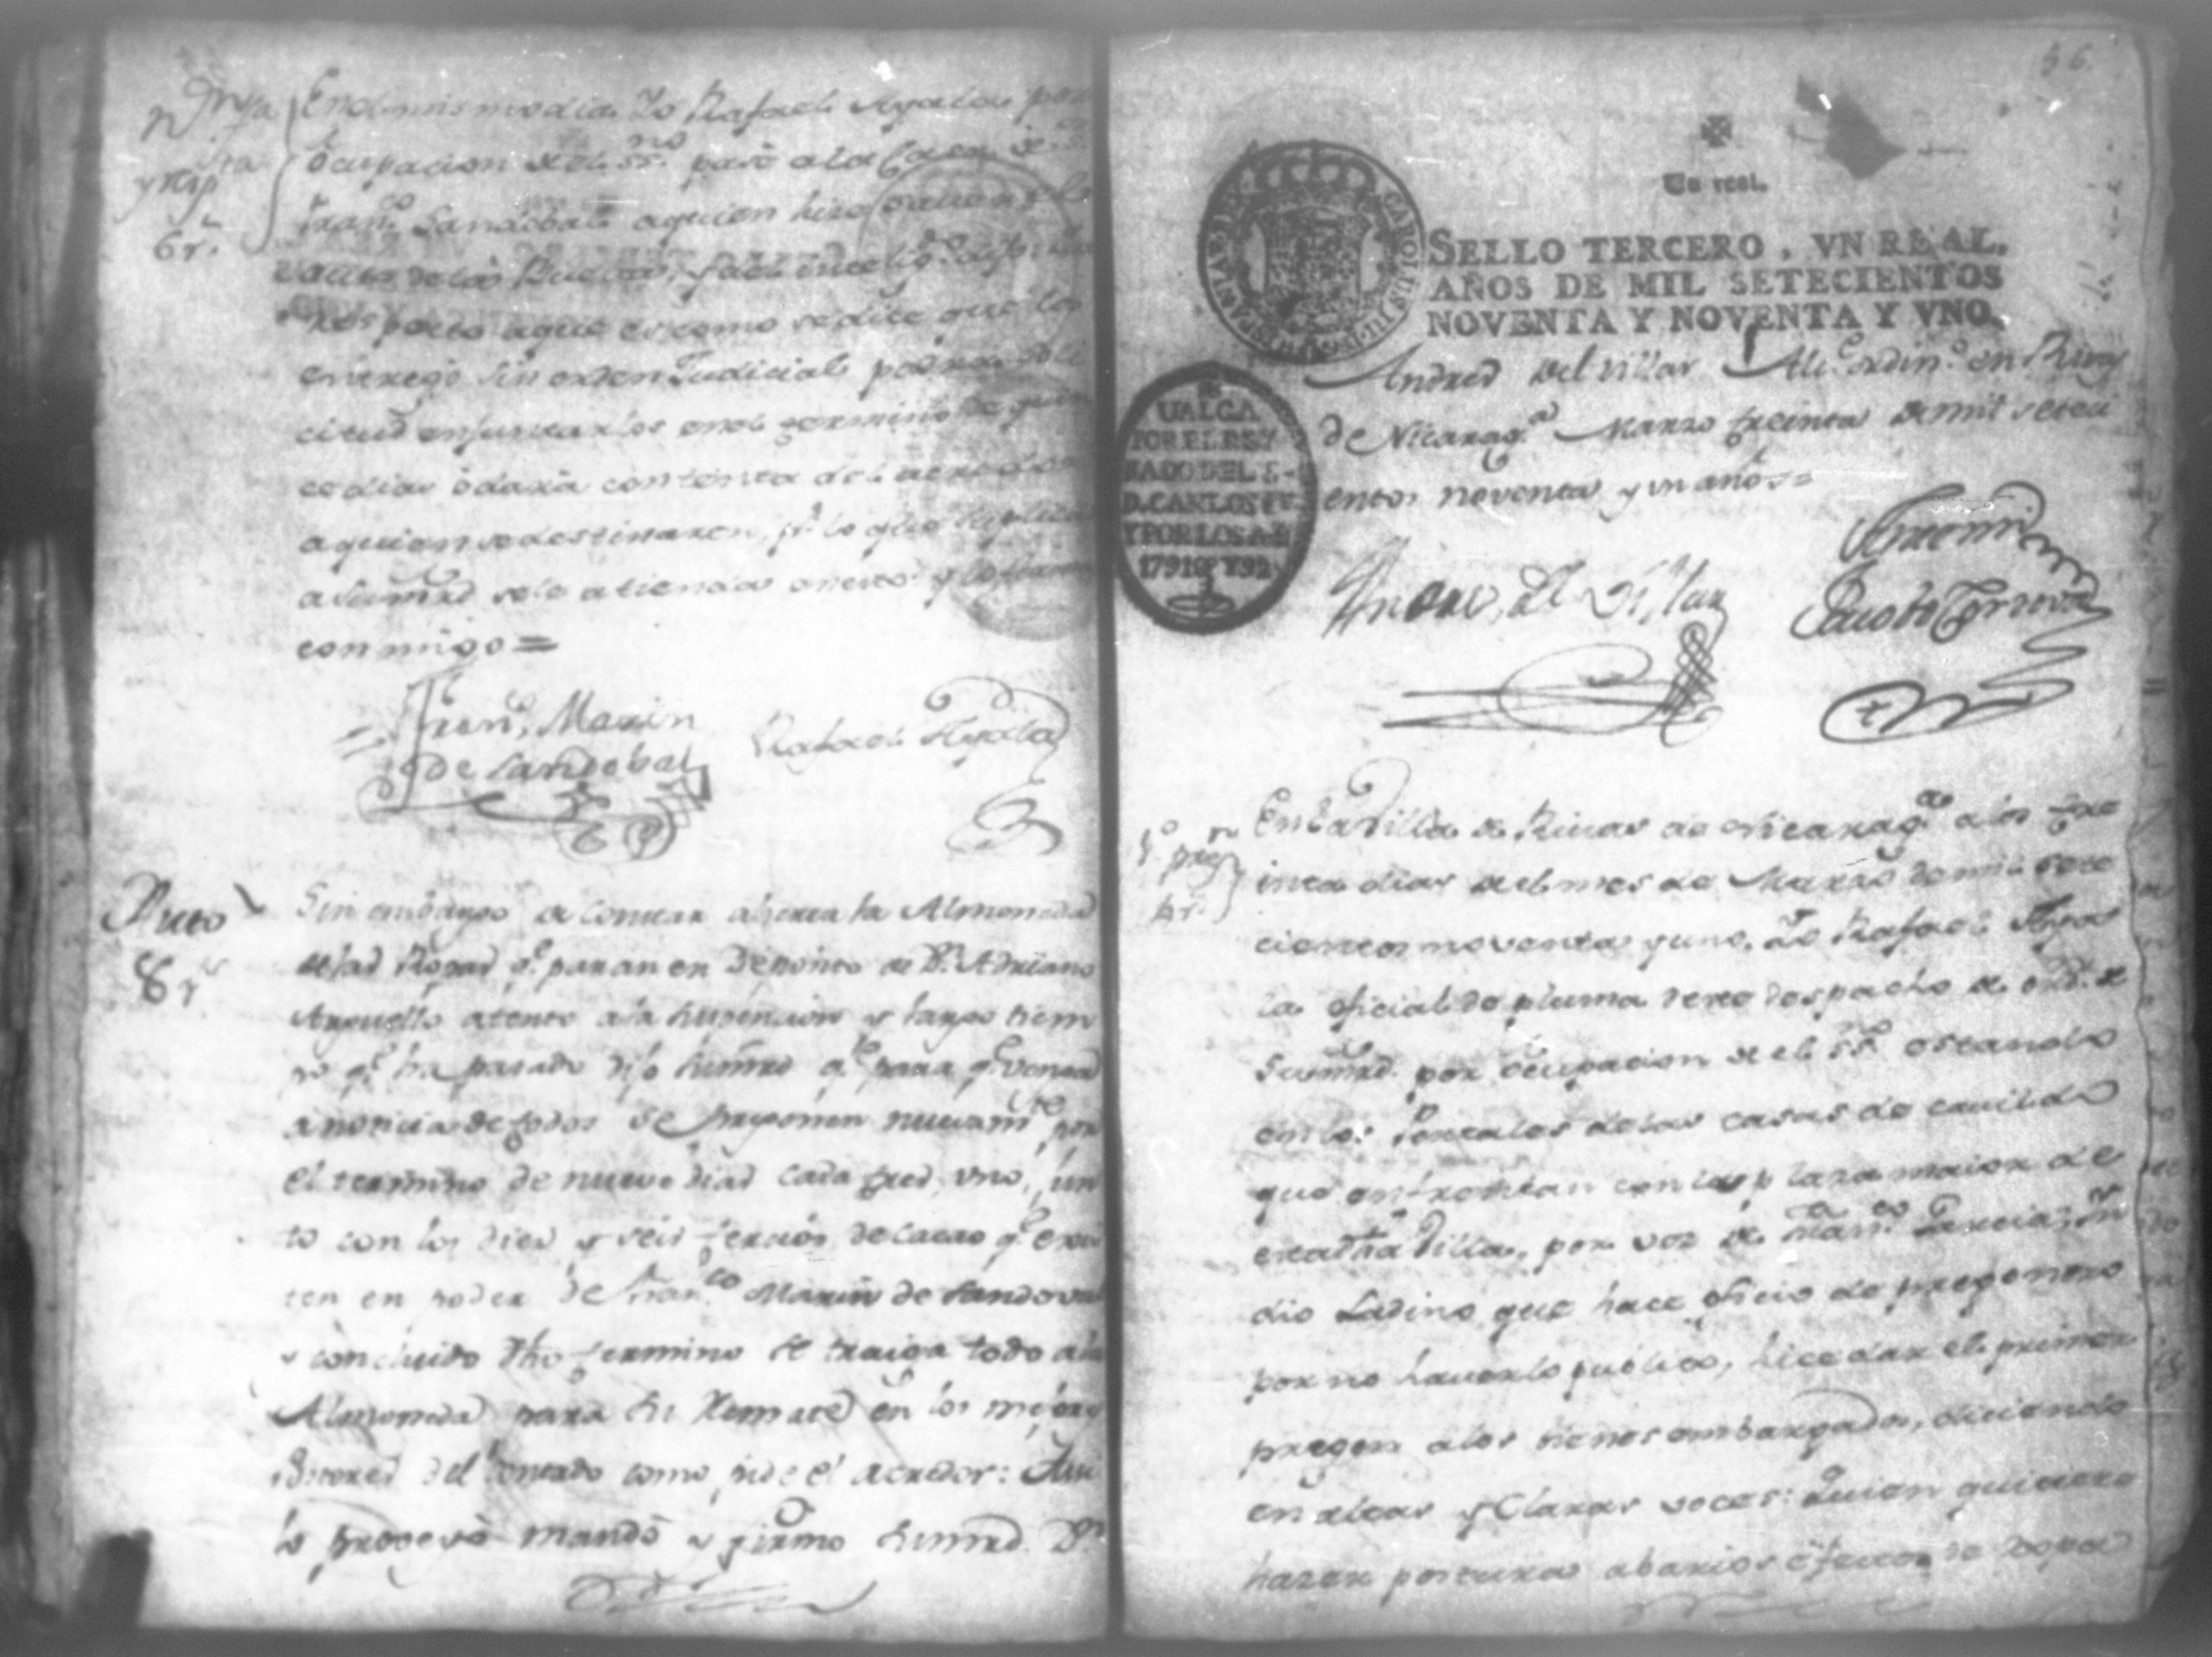 En el mismo dia Yo Rafael Ayala por
ocupacion del SS.no pasé a la Casa de
Fran.co Sandobal aquien hice
de los Bueltos,
respecto aque es como se dice que los
entregó sin orden Judicial podra
citud en juntarlos en el termino de quin
ce dias ò dará contenta del acreedor
aquien se destinaren, p.r lo que suplica
a Sumrd se le atienda en esto y lo firmó
conmigo =
Fran.co Marin
de Sandobal
Rafael Ayala
Auto
8 r.s
Sin embargo de constar abierta la Almoneda
de las Ropas q.e paran en Deposito de D.n Adriano
Arguello atento a la suspencion y largo tiem
po q.e ha pasado dijo sumrd q.e para q.e venga
a noticia de todos se pregonen nuevam.te por
el termino de nueve dias cada tres, uno, jun
to con los dies y seis tercios de cacao q.e exis
ten en poder de Fran.co Marin de Sandoval
y concluido dho termino se traiga todo a la
Almoneda para su Remate en los mejores
Postores del contado como pide el acredor: Assi
lo proveyó mandó y firmó sumrd. D.n
56.
Un real.
SELLO TERCERO, VN REAL,
AÑOS DE MIL SETECIENTOS
NOVENTA Y NOVENTA Y VNO.
VALGA
POR EL REY
NADO DEL S.
D. CARLOS IV.
Y POR LOS A.S
1791 Y 92.
Andres del Villar Alc.e ordin.o en Rivas
de Nicarag.a Marzo treinta de mil seteci
entos noventa y un años =
Andres del Villar
Antoni
Jacobo
1.o preg.n
En la Villa de Rivas de Nicarag.a a los tre
inta dias del mes de Marzo de mil sete
cientos noventa y uno. Yo Rafael Aya
la oficial de pluma de este despacho de ord.n de
Sumrd. por ocupacion del SS.no estando
en los Portales de las casas de cavildo
que enfrentan con la plaza maior de
esta dha Villa, por voz de Fran.co Garcia, In
dio Ladino que hace oficio de pregonero
por no haverlo publico, hice dar el primer
pregon a los bienes embargados, diciendo
en altas y Claras voces: Quien quisiere
hazer postura a barios efectos de ropa